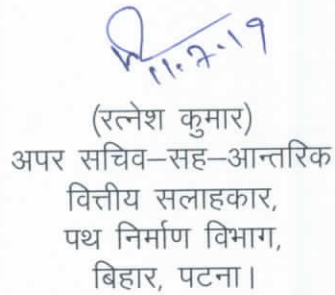 11.7.19
(रत्नेश कुमार)
अपर सचिव–सह–आन्तरिक
वित्तीय सलाहकार,
पथ निर्माण विभाग,
बिहार, पटना।